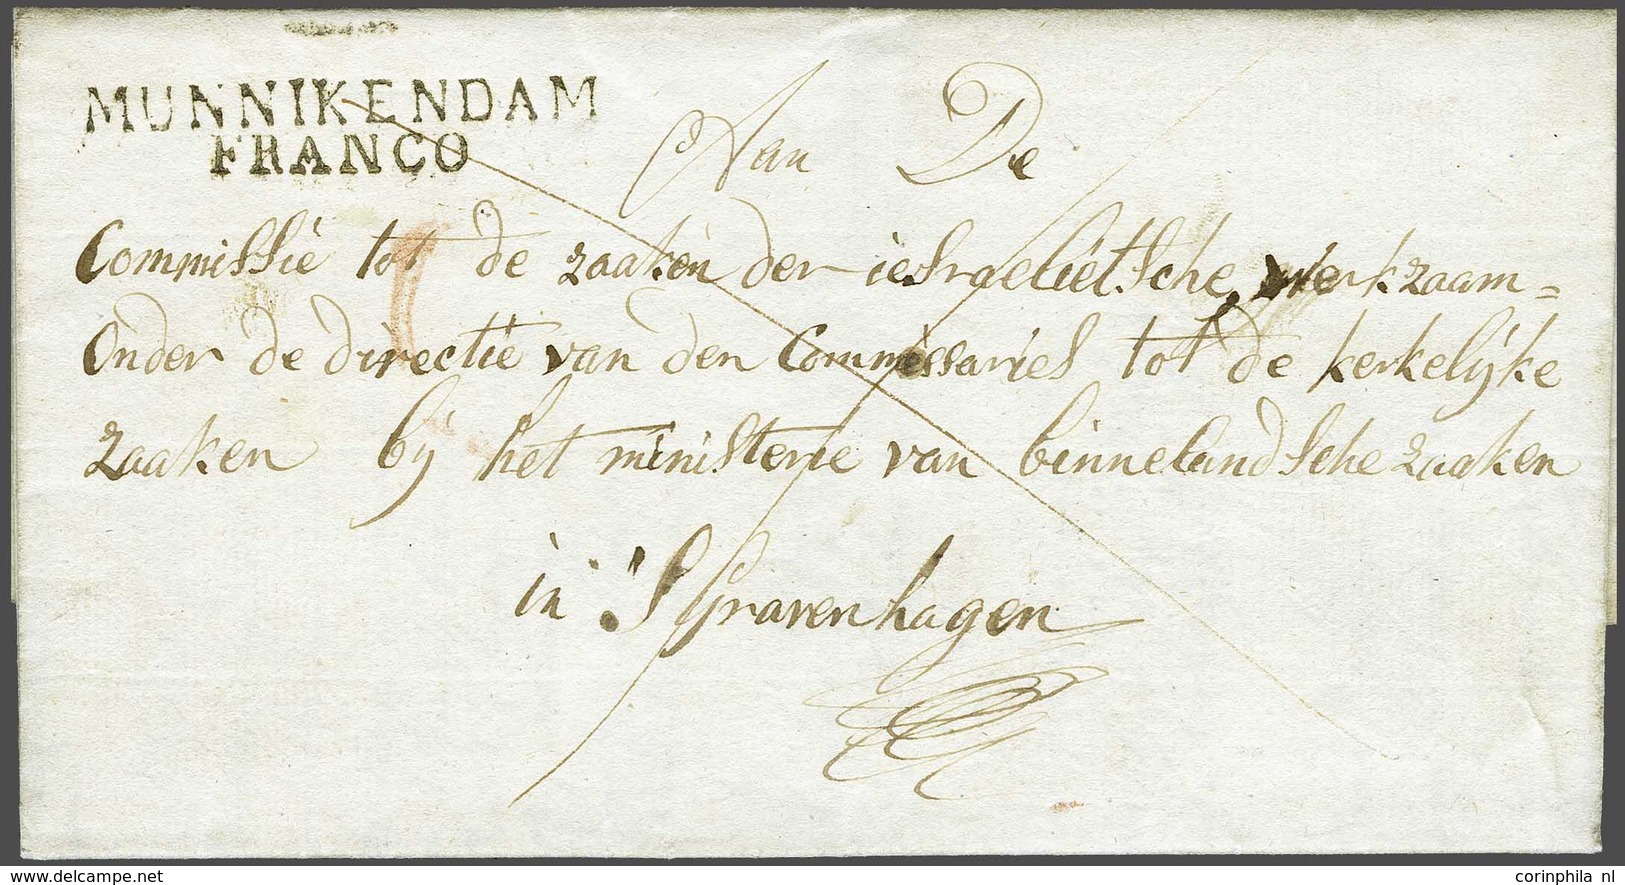 MUNNIKENDAM
FRANCO
Aan De
Commissie tot de zaaken der iesraelietsche, werkzaam=
Onder de directie van den Commissaries tot de kerkelijke
zaaken bij het ministerie van binnelandsche zaaken
in 'SGravenhagen
www.delcampe.net
corinphila nl